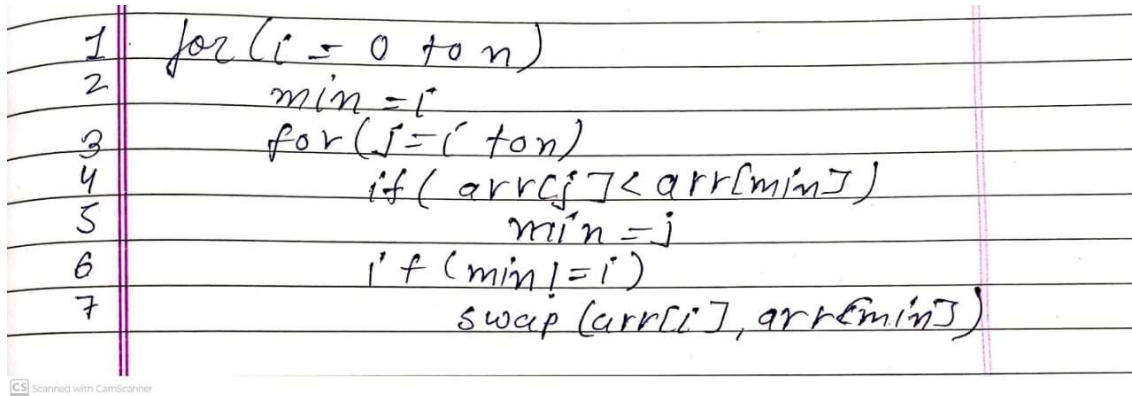 1 for (i = 0 to n)
2 min = i
3 for (j = i to n)
4 if (arr[j] < arr[min])
5 min = j
6 if (min != i)
7 swap (arr[i], arr[min])
CS Scanned with CamScanner